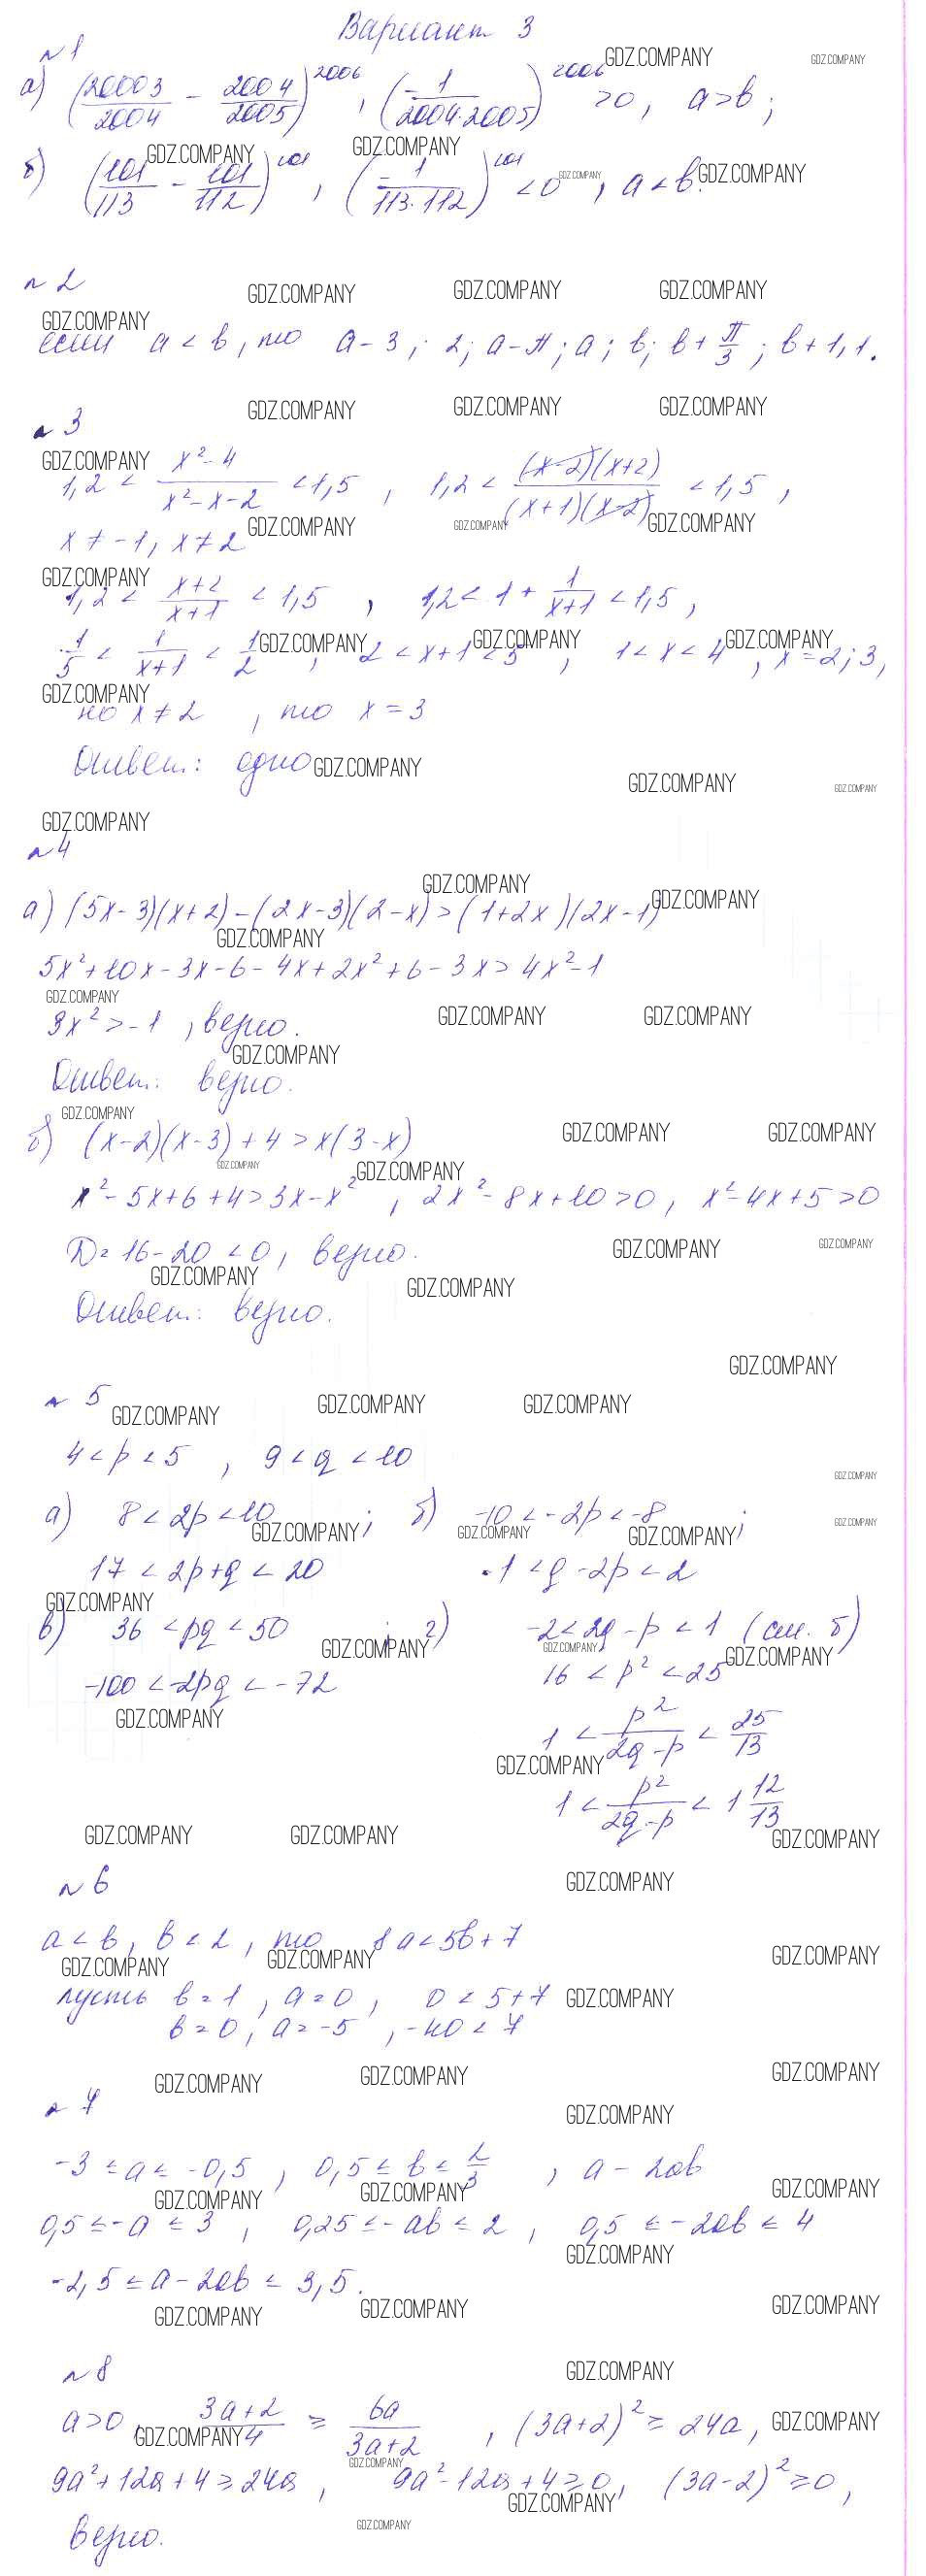 Вариант 3
№1
а) (20003/2004 - 2004/2005)^2006, (-1/2004·2005)^2006 >0, a>b;
б) (101/113 - 101/112)^101, (-1/113·112)^101 <0, a<b.
№2
если a<b, то a-3; 2; a-π; a; b; b+π/3; b+1,1.
№3
1,2 < x²-4/x²-x-2 <1,5, 1,2< (x-2)(x+2)/(x+1)(x-2) <1,5,
x≠-1, x≠2
1,2 < x+2/x+1 <1,5, 1,2<1+1/x+1<1,5,
1/5 < 1/x+1 < 1/2, 2<x+1<5, 1<x<4, x=2;3,
но x≠2, то x=3
Ответ: одно
№4
а) (5x-3)(x+2)-(2x-3)(2-x)>(1+2x)(2x-1)
5x²+10x-3x-6-4x+2x²+6-3x>4x²-1
3x²>-1, верно.
Ответ: верно.
б) (x-2)(x-3)+4>x(3-x)
x²-5x+6+4>3x-x², 2x²-8x+10>0, x²-4x+5>0
D=16-20<0, верно.
Ответ: верно.
№5
4<p<5, 9<q<10
а) 8<2p<10; б) -10<-2p<-8;
17<2p+q<20 -1<q-2p<2
в) 36<pq<50; г) -2<2q-p<1 (см. б)
-100<-2pq<-72 16<p²<25
1< p²/2q-p < 25/13
1< p²/2q-p <1 12/13
№6
a<b, b<2, то 8a<5b+7
пусть b=1, a=0, 0<5+7
b=0, a=-5, -40<7
№7
-3≤a≤-0,5, 0,5≤b≤2/3, a-2ab
0,5≤-a≤3, 0,25≤-ab≤2, 0,5≤-2ab≤4
-2,5≤a-2ab≤3,5.
№8
a>0, 3a+2/4 ≥ 6a/3a+2, (3a+2)²≥24a,
9a²+12a+4≥24a, 9a²-12a+4≥0, (3a-2)²≥0,
верно.
GDZ.COMPANY